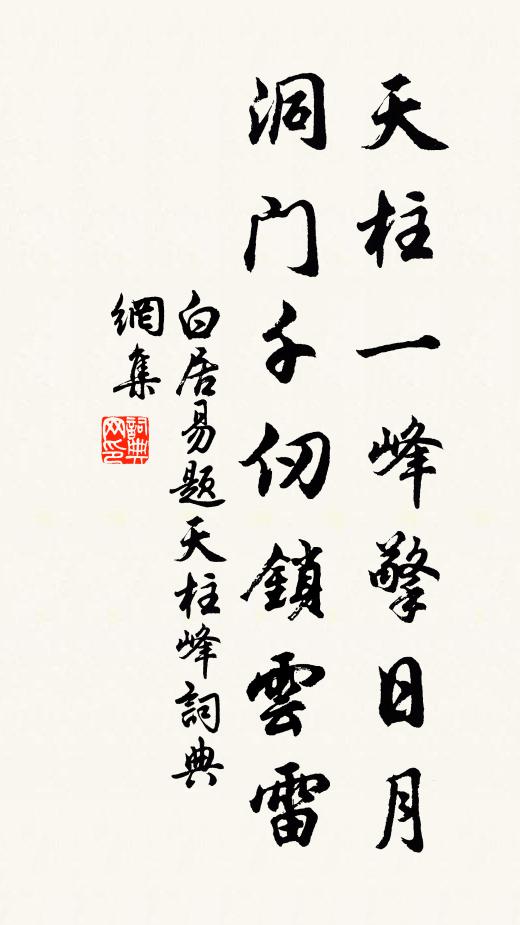 天柱一峰擎日月
洞门千仞鎖雲雷
白居易題天柱峰詞典
網集
詞典
网印